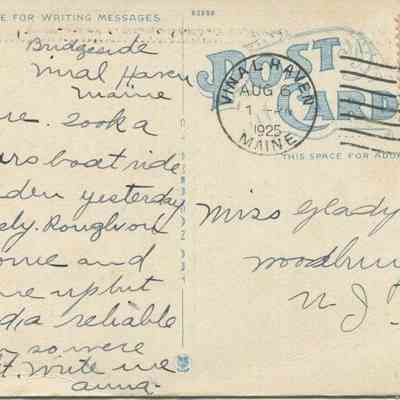 E FOR WRITING MESSAGES
Bridgeside
Vinal Haven
Maine
re. Took a
urs boat ride
den yesterday
ely. Rough
ome and
me up but
a reliable
so were
t. Write me
Anna.
POST
CARD
VINAL HAVEN
AUG 6
1925
MAINE
THIS SPACE FOR ADD
Miss Glady
Woodbu
N. J.